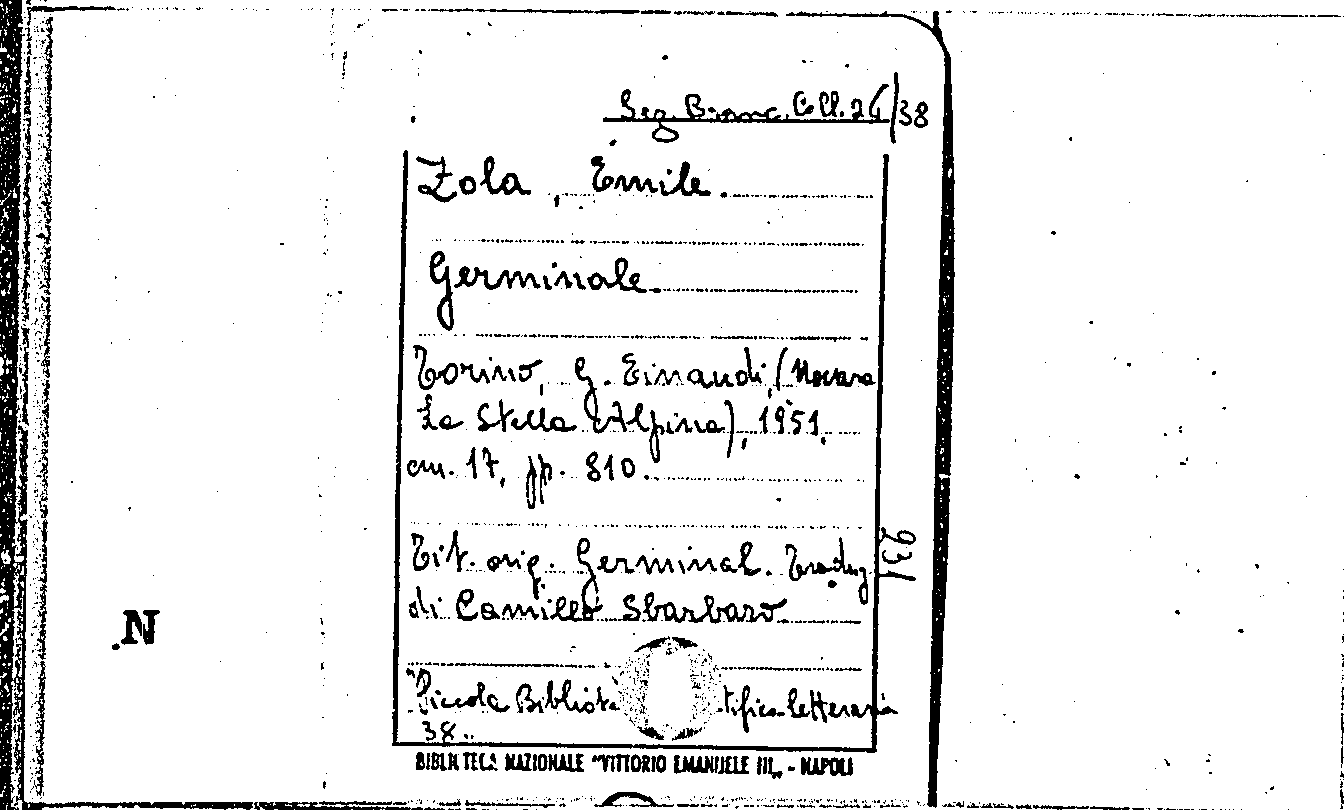 Sez. Branc. Coll. 24/38
Zola, Emile.
Germinale.
Torino, G. Einaudi, (Novara
La Stella Alpina), 1951.
cm. 17, pp. 810.
Tit. orig. Germinal. Traduz
di Camillo Sbarbaro.
Piccola Bibliote tifico-letteraria
38.
931
N
BIBLIOTECA NAZIONALE "VITTORIO EMANUELE III„ - NAPOLI